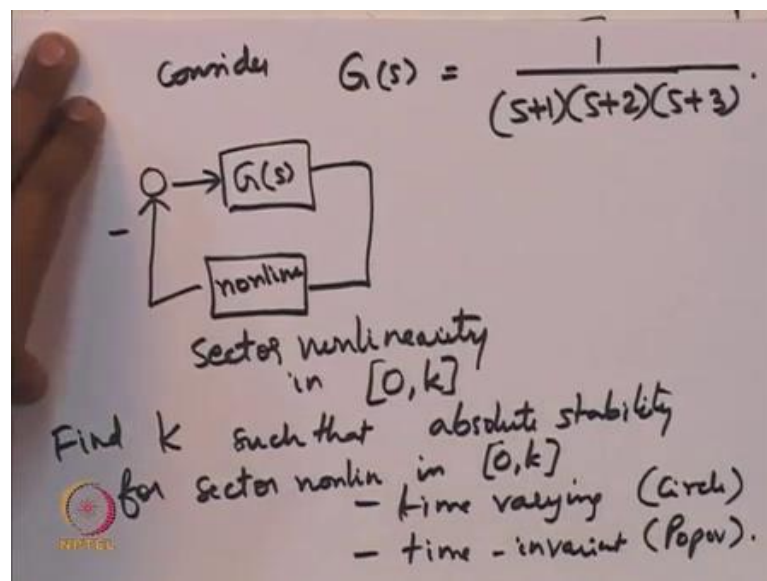 Consider G(s) = 1 / (s+1)(s+2)(s+3) .
G(s)
-
nonline
sector nonlinearity
in [0,k]
Find k such that absolute stability
for sector nonlin in [0,k]
- time varying (Circle)
- time-invariant (Popov).
NPTEL